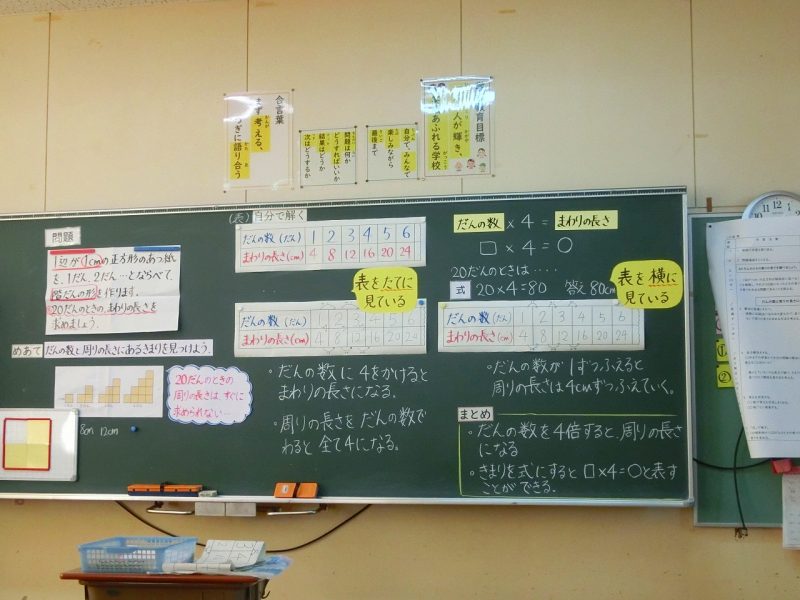 合言葉
まず考える、
つぎに語り合う
問題は何か
どうすればいいか
結果はどうか
次はどうするか
自分で、みんなで
楽しみながら
最後まで
教育目標
人が輝き、
あふれる学校
問題
1辺が1cmの正方形のあつ紙
を、1だん、2だん…とならべて、
階だんの形を作ります。
20だんのときの、まわりの長さを
求めましょう。
めあて だんの数と周りの長さにあるきまりを見つけよう。
20だんのときの
周りの長さは、すぐに
求められない…
8cm 12cm
(表) 自分で解く
だんの数(だん) 1 2 3 4 5 6
まわりの長さ(cm) 4 8 12 16 20 24
表をたてに
見ている
だんの数(だん) 1 2 3 4 5 6
まわりの長さ(cm) 4 8 12 16 20 24
・だんの数に4をかけると
まわりの長さになる。
・周りの長さをだんの数で
わると全て4になる。
だんの数 × 4 = まわりの長さ
□ × 4 = ○
20だんのときは・・・・
式 20×4=80 答え 80cm
表を横に
見ている
だんの数(だん) 1 2 3 4 5 6
まわりの長さ(cm) 4 8 12 16 20 24
・だんの数が1ずつふえると
周りの長さは4cmずつふえていく。
まとめ
・だんの数を4倍すると、周りの長さ
になる
・きまりを式にすると□×4=○と表す
ことができる。
①
②